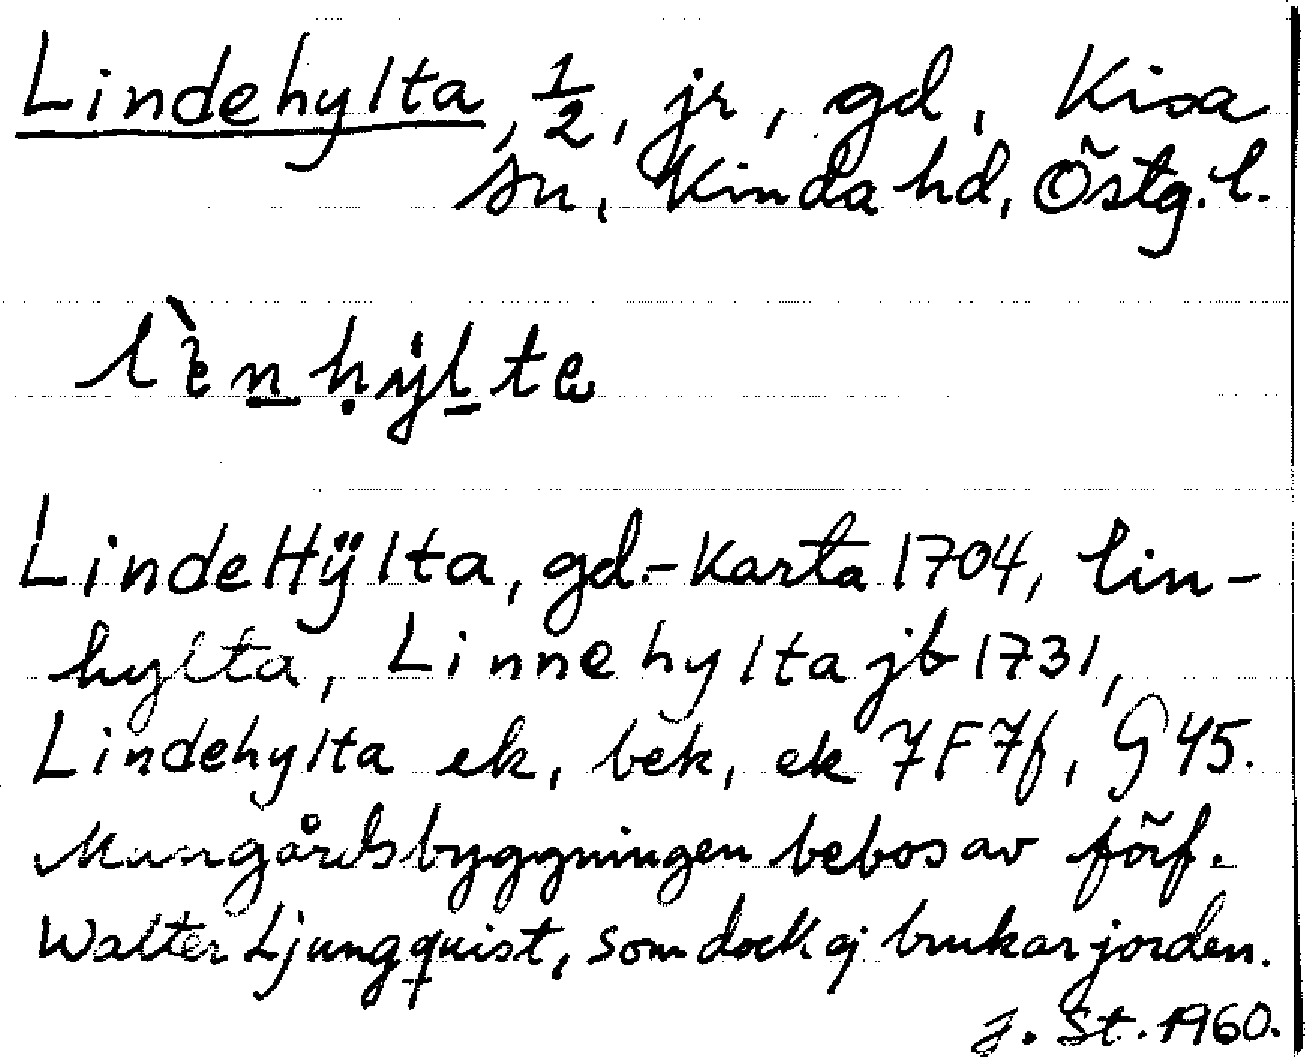 Lindehylta, ½, jr, gd, Kisa
sn, Kinda hd, Östg. l.
lènhylte
LindeHÿlta, gd.-karta 1704, lin-
hylta, Linnehylta jb 1731,
Lindehylta ek, bek, ek 7F7f, G 45.
Mangårdsbyggningen bebos av förf.
Walter Ljungquist, som dock ej brukar jorden.
J. St. 1960.